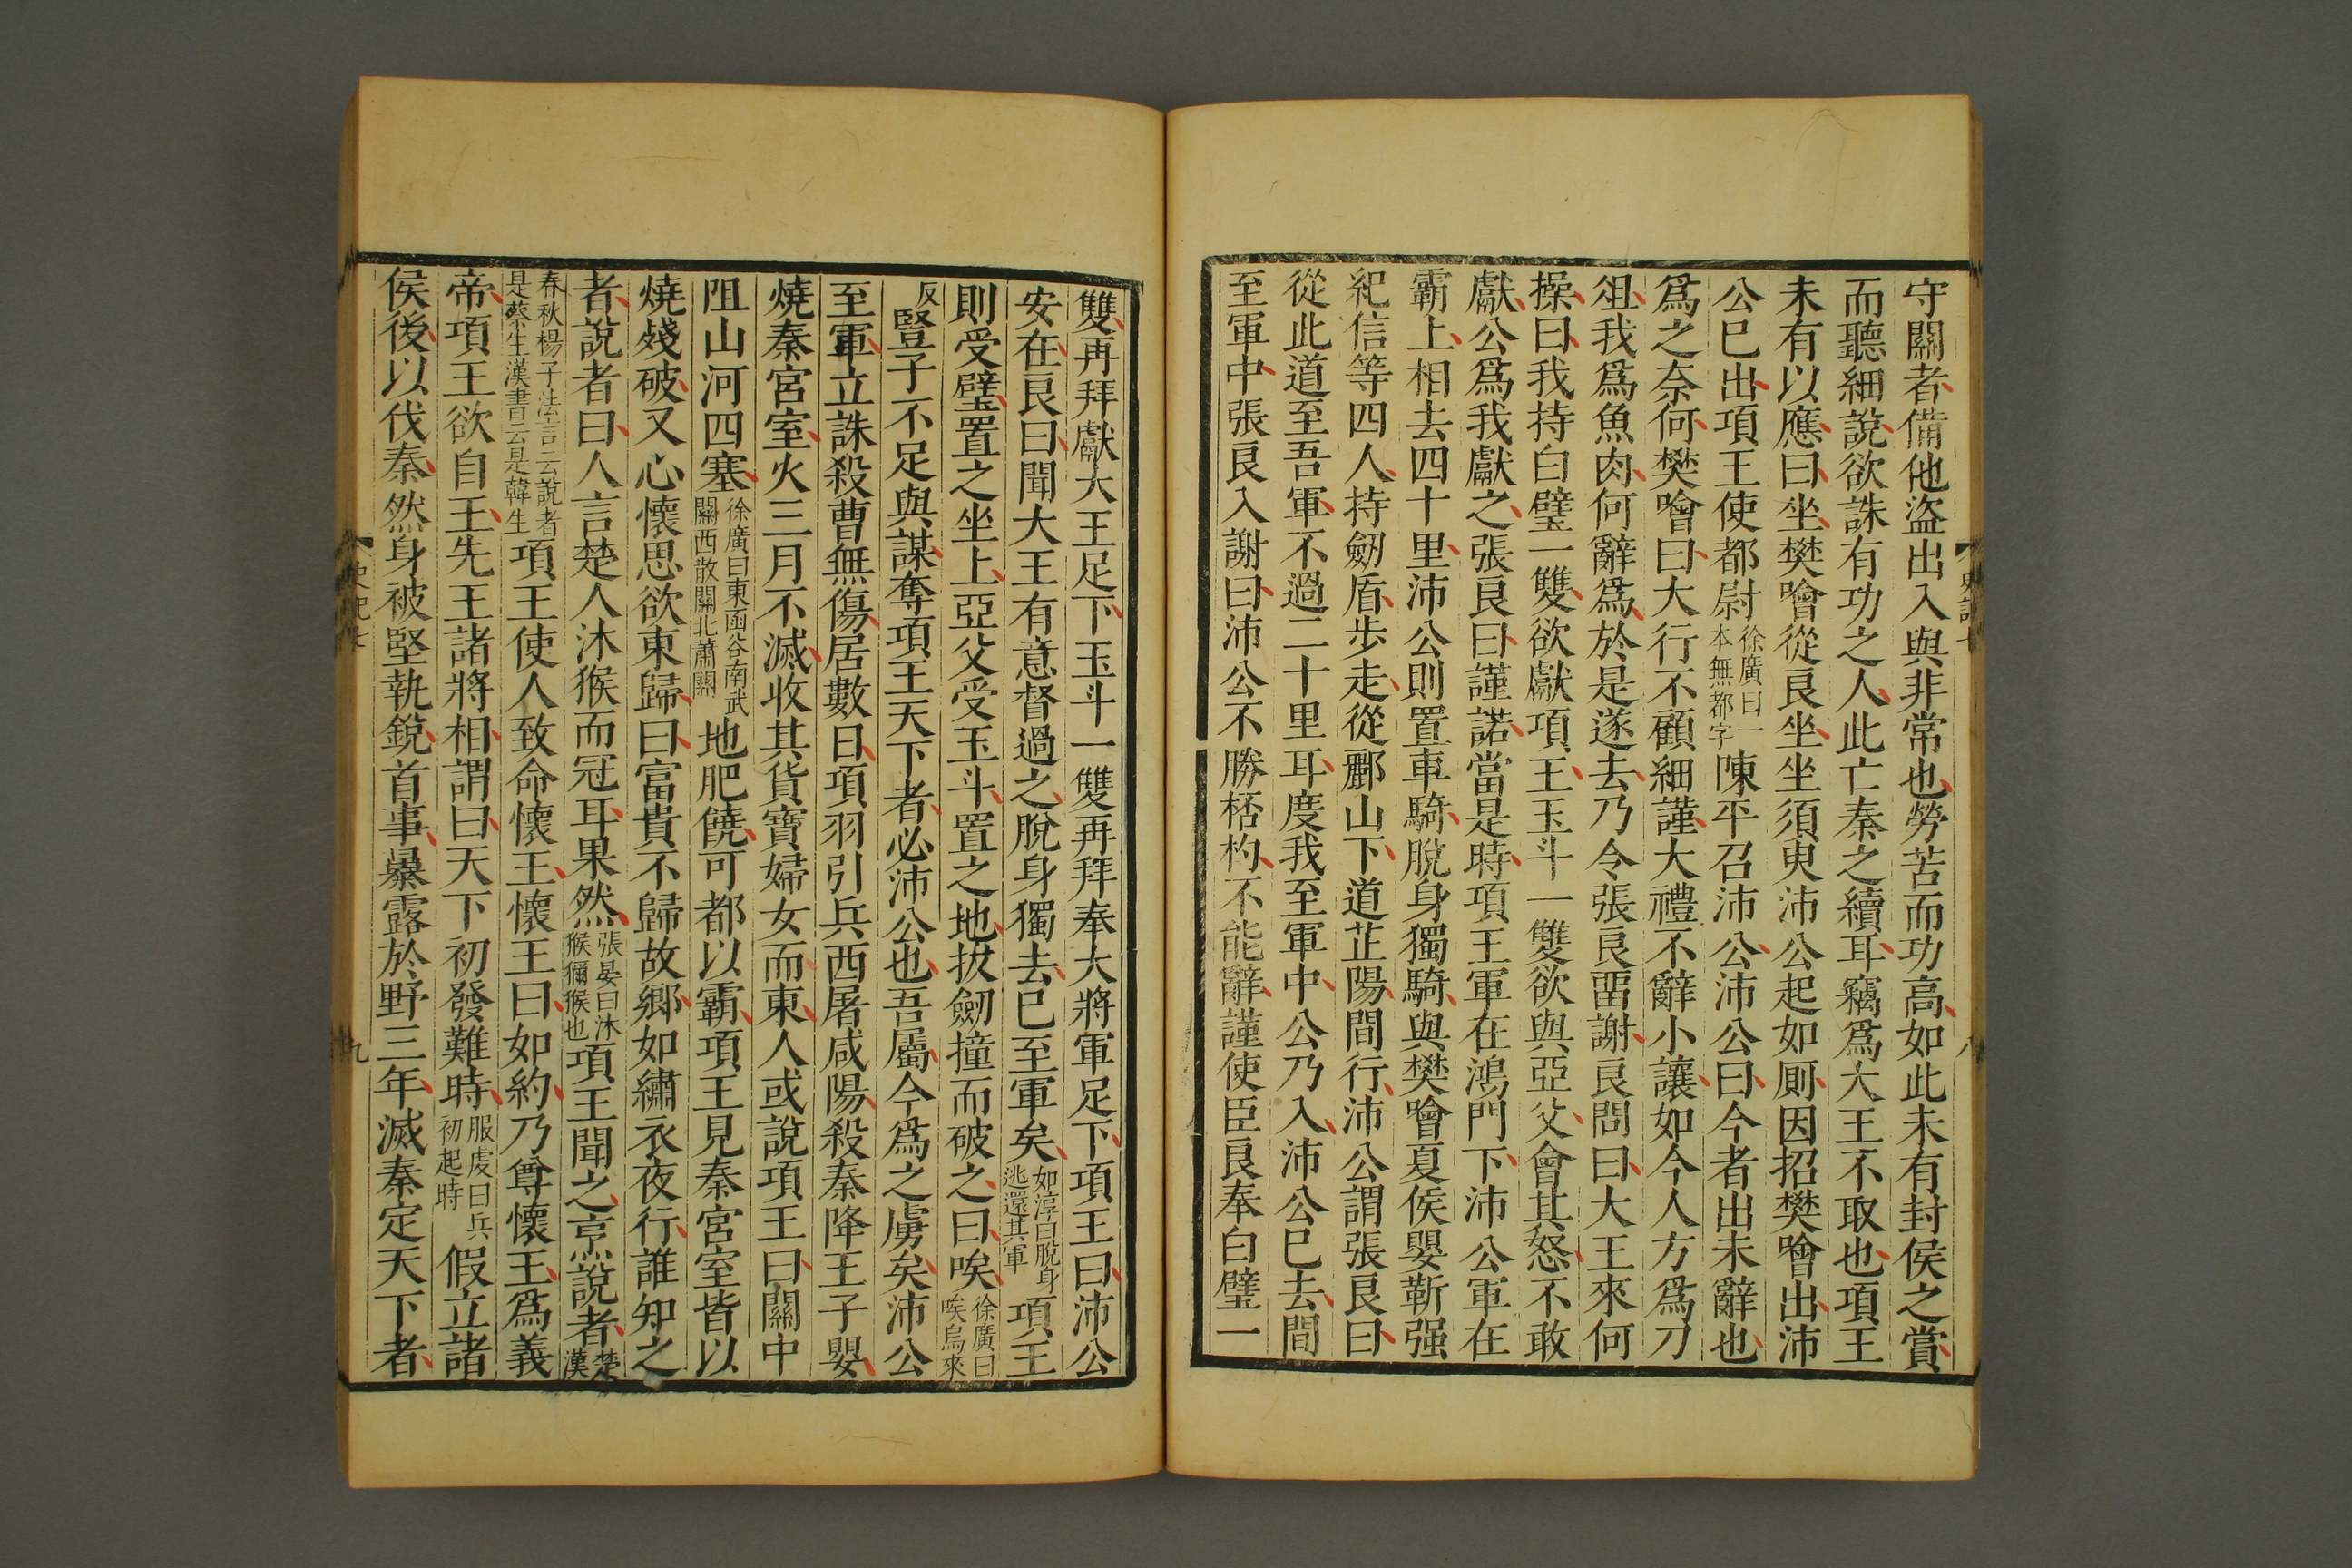 守關者備他盜出入與非常也勞苦而功高如此未有封侯之賞
而聽細說欲誅有功之人此亡秦之續耳竊爲大王不取也項王
未有以應曰坐樊噲從良坐坐須臾沛公起如厠因招樊噲出沛
公已出項王使都尉徐廣曰一本無都字陳平召沛公沛公曰今者出未辭也
爲之奈何樊噲曰大行不顧細謹大禮不辭小讓如今人方爲刀
俎我爲魚肉何辭爲於是遂去乃令張良畱謝良問曰大王來何
操曰我持白璧一雙欲獻項王玉斗一雙欲與亞父會其怒不敢
獻公爲我獻之張良曰謹諾當是時項王軍在鴻門下沛公軍在
霸上相去四十里沛公則置車騎脫身獨騎與樊噲夏侯嬰靳强
紀信等四人持劒盾步走從酈山下道芷陽間行沛公謂張良曰
從此道至吾軍不過二十里耳度我至軍中公乃入沛公已去間
至軍中張良入謝曰沛公不勝桮杓不能辭謹使臣良奉白璧一
史記七
八
雙再拜獻大王足下玉斗一雙再拜奉大將軍足下項王曰沛公
安在良曰聞大王有意督過之脫身獨去已至軍矣如淳曰脫身逃還其軍項王
則受璧置之坐上亞父受玉斗置之地拔劒撞而破之曰唉徐廣曰唉烏來
反豎子不足與謀奪項王天下者必沛公也吾屬今爲之虜矣沛公
至軍立誅殺曹無傷居數日項羽引兵西屠咸陽殺秦降王子嬰
燒秦宮室火三月不滅收其貨寶婦女而東人或說項王曰關中
阻山河四塞徐廣曰東函谷南武關西散關北蕭關地肥饒可都以霸項王見秦宮室皆以
燒殘破又心懷思欲東歸曰富貴不歸故鄉如繡衣夜行誰知之
者說者曰人言楚人沐猴而冠耳果然張晏曰沐猴獼猴也項王聞之烹說者楚漢
春秋楊子法言云說者是蔡生漢書云是韓生項王使人致命懷王懷王曰如約乃尊懷王爲義
帝項王欲自王先王諸將相謂曰天下初發難時服虔曰兵初起時假立諸
侯後以伐秦然身被堅執銳首事暴露於野三年滅秦定天下者
史記七
九